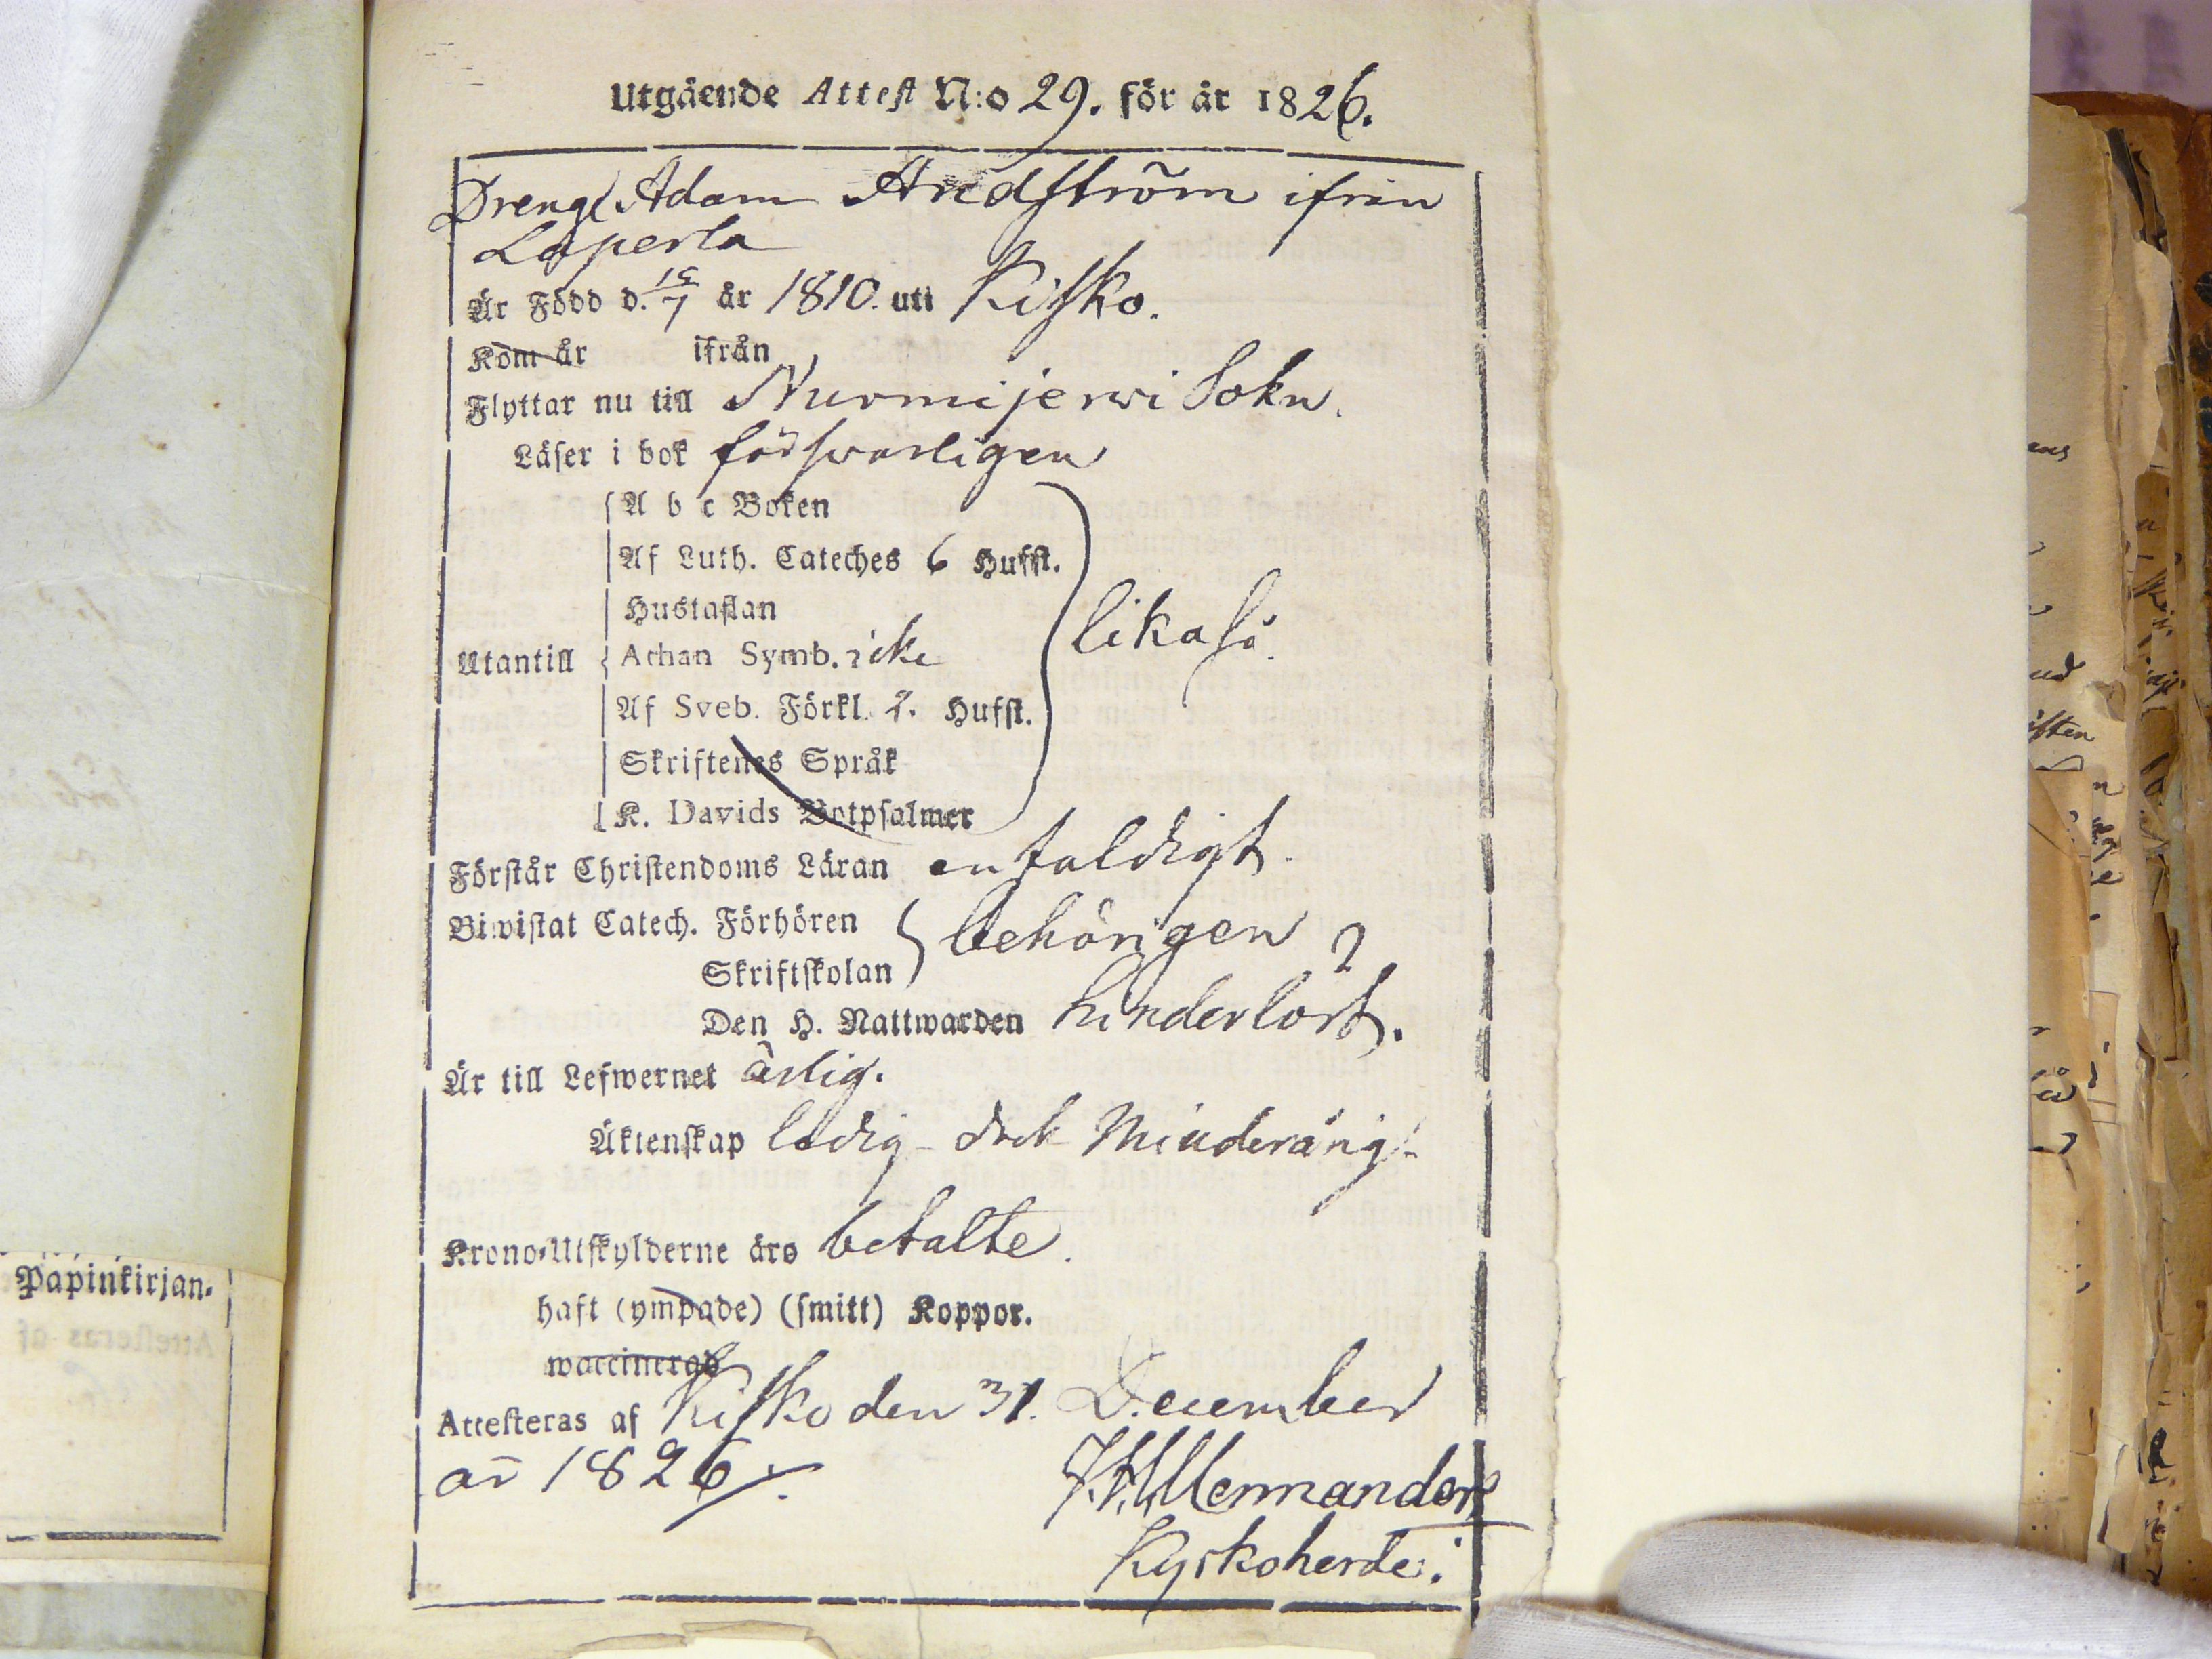 Utgående Attest N:o 29. för år 1826.
Dreng Adam Andström ifrån
Laperla
Är Född d. 15/7 år 1810. uti Kisko.
Kom år ifrån
Flyttar nu till Nurmijerwi Sokn.
Läser i bok förswarligen
A b c Boken
Af Luth. Cateches 6 Hufst.
Hustaflan
Utantill Athan Symb. icke likaså.
Af Sveb. Förkl. 2. Hufst.
Skriftenes Språk
K. Davids Botpsalmer
Förstår Christendoms Läran enfaldigt.
Biwistat Catech. Förhören behörigen
Skriftskolan
Den H. Nattwarden hinderlöst.
Är till Lefwernet ärlig.
Äktenskap ledig - dock Minderårig
Krono-Utskylderne äro betalte.
haft (ympade) (smitt) Koppor.
waccinerad
Attesteras af Kisko den 31. December
år 1826.
Mennander
Kyrkoherde.
Papinkirjan-